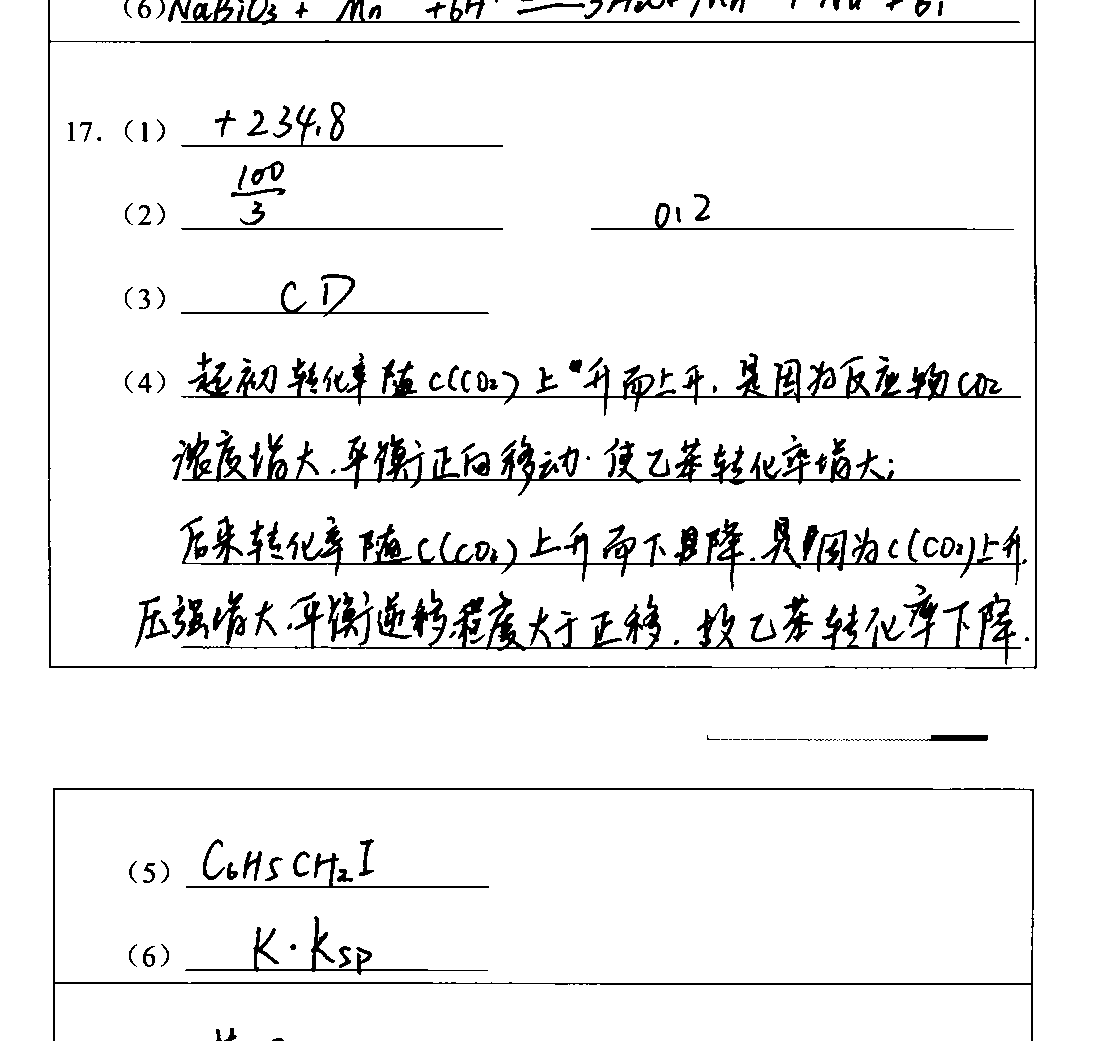 (6) NaBiO₃ + Mn +6H⁺ = 3H₂O + Mn + Na + Bi
17. (1) +234.8
(2) 100/3 0.2
(3) CD
(4) 起初转化率随c(CO₂)上升而上升,是因为反应物CO₂
浓度增大,平衡正向移动.使乙苯转化率增大;
后来转化率随c(CO₂)上升而下降,是因为c(CO₂)上升,
压强增大,平衡逆移程度大于正移,故乙苯转化率下降.
(5) C₆H₅CH₂I
(6) K·Ksp